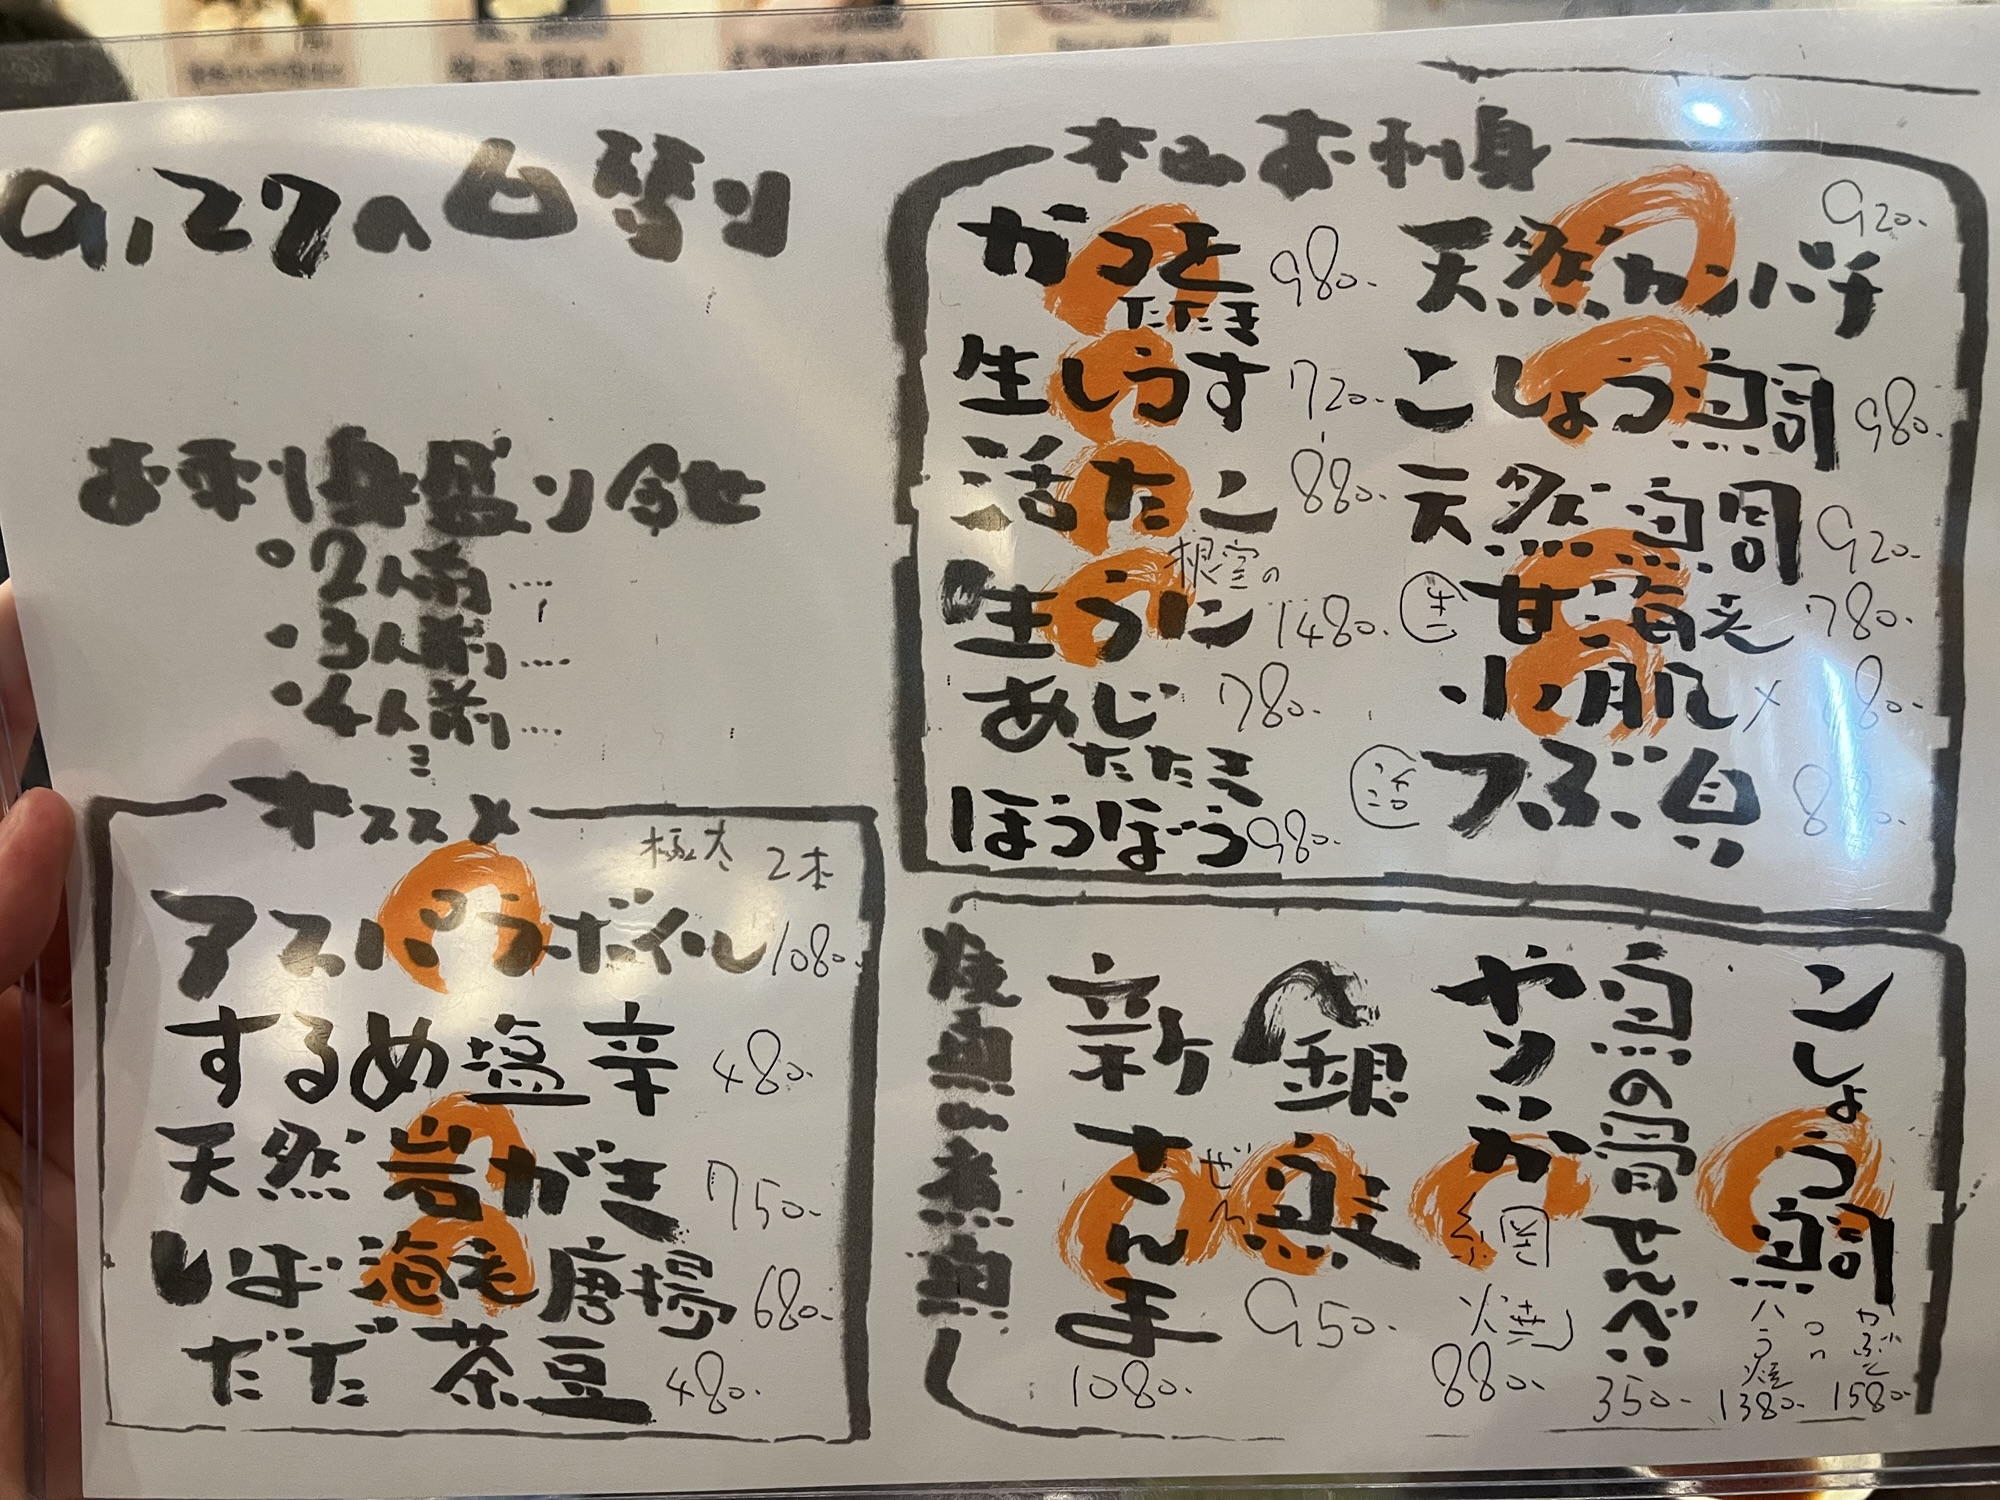 9.27の日替り
お刺身盛り合せ
・2人前…
・3人前…
・4人前…
オススメ
極太 2本
アスパラボイル 1080.
するめ塩辛 480.
天然岩がき 750.
しば海老唐揚 680.
だだ茶豆 480.
本日お刺身
かつを 980.
たたき
生しらす 720.
活たこ 880.
根室の
生うに 1480.
あじ 780.
たたき
ほうぼう 980.
天然カンパチ 920.
こしょう鯛 980.
天然鯛 920.
生 甘海老 780.
小肌
活 つぶ貝
焼魚・煮魚
新さんま 1080.
銀ぜん 950.
ヤリいか 880.
魚の骨せんべい 350.
こしょう鯛
ハラ焼 1380.
かぶと 1580.